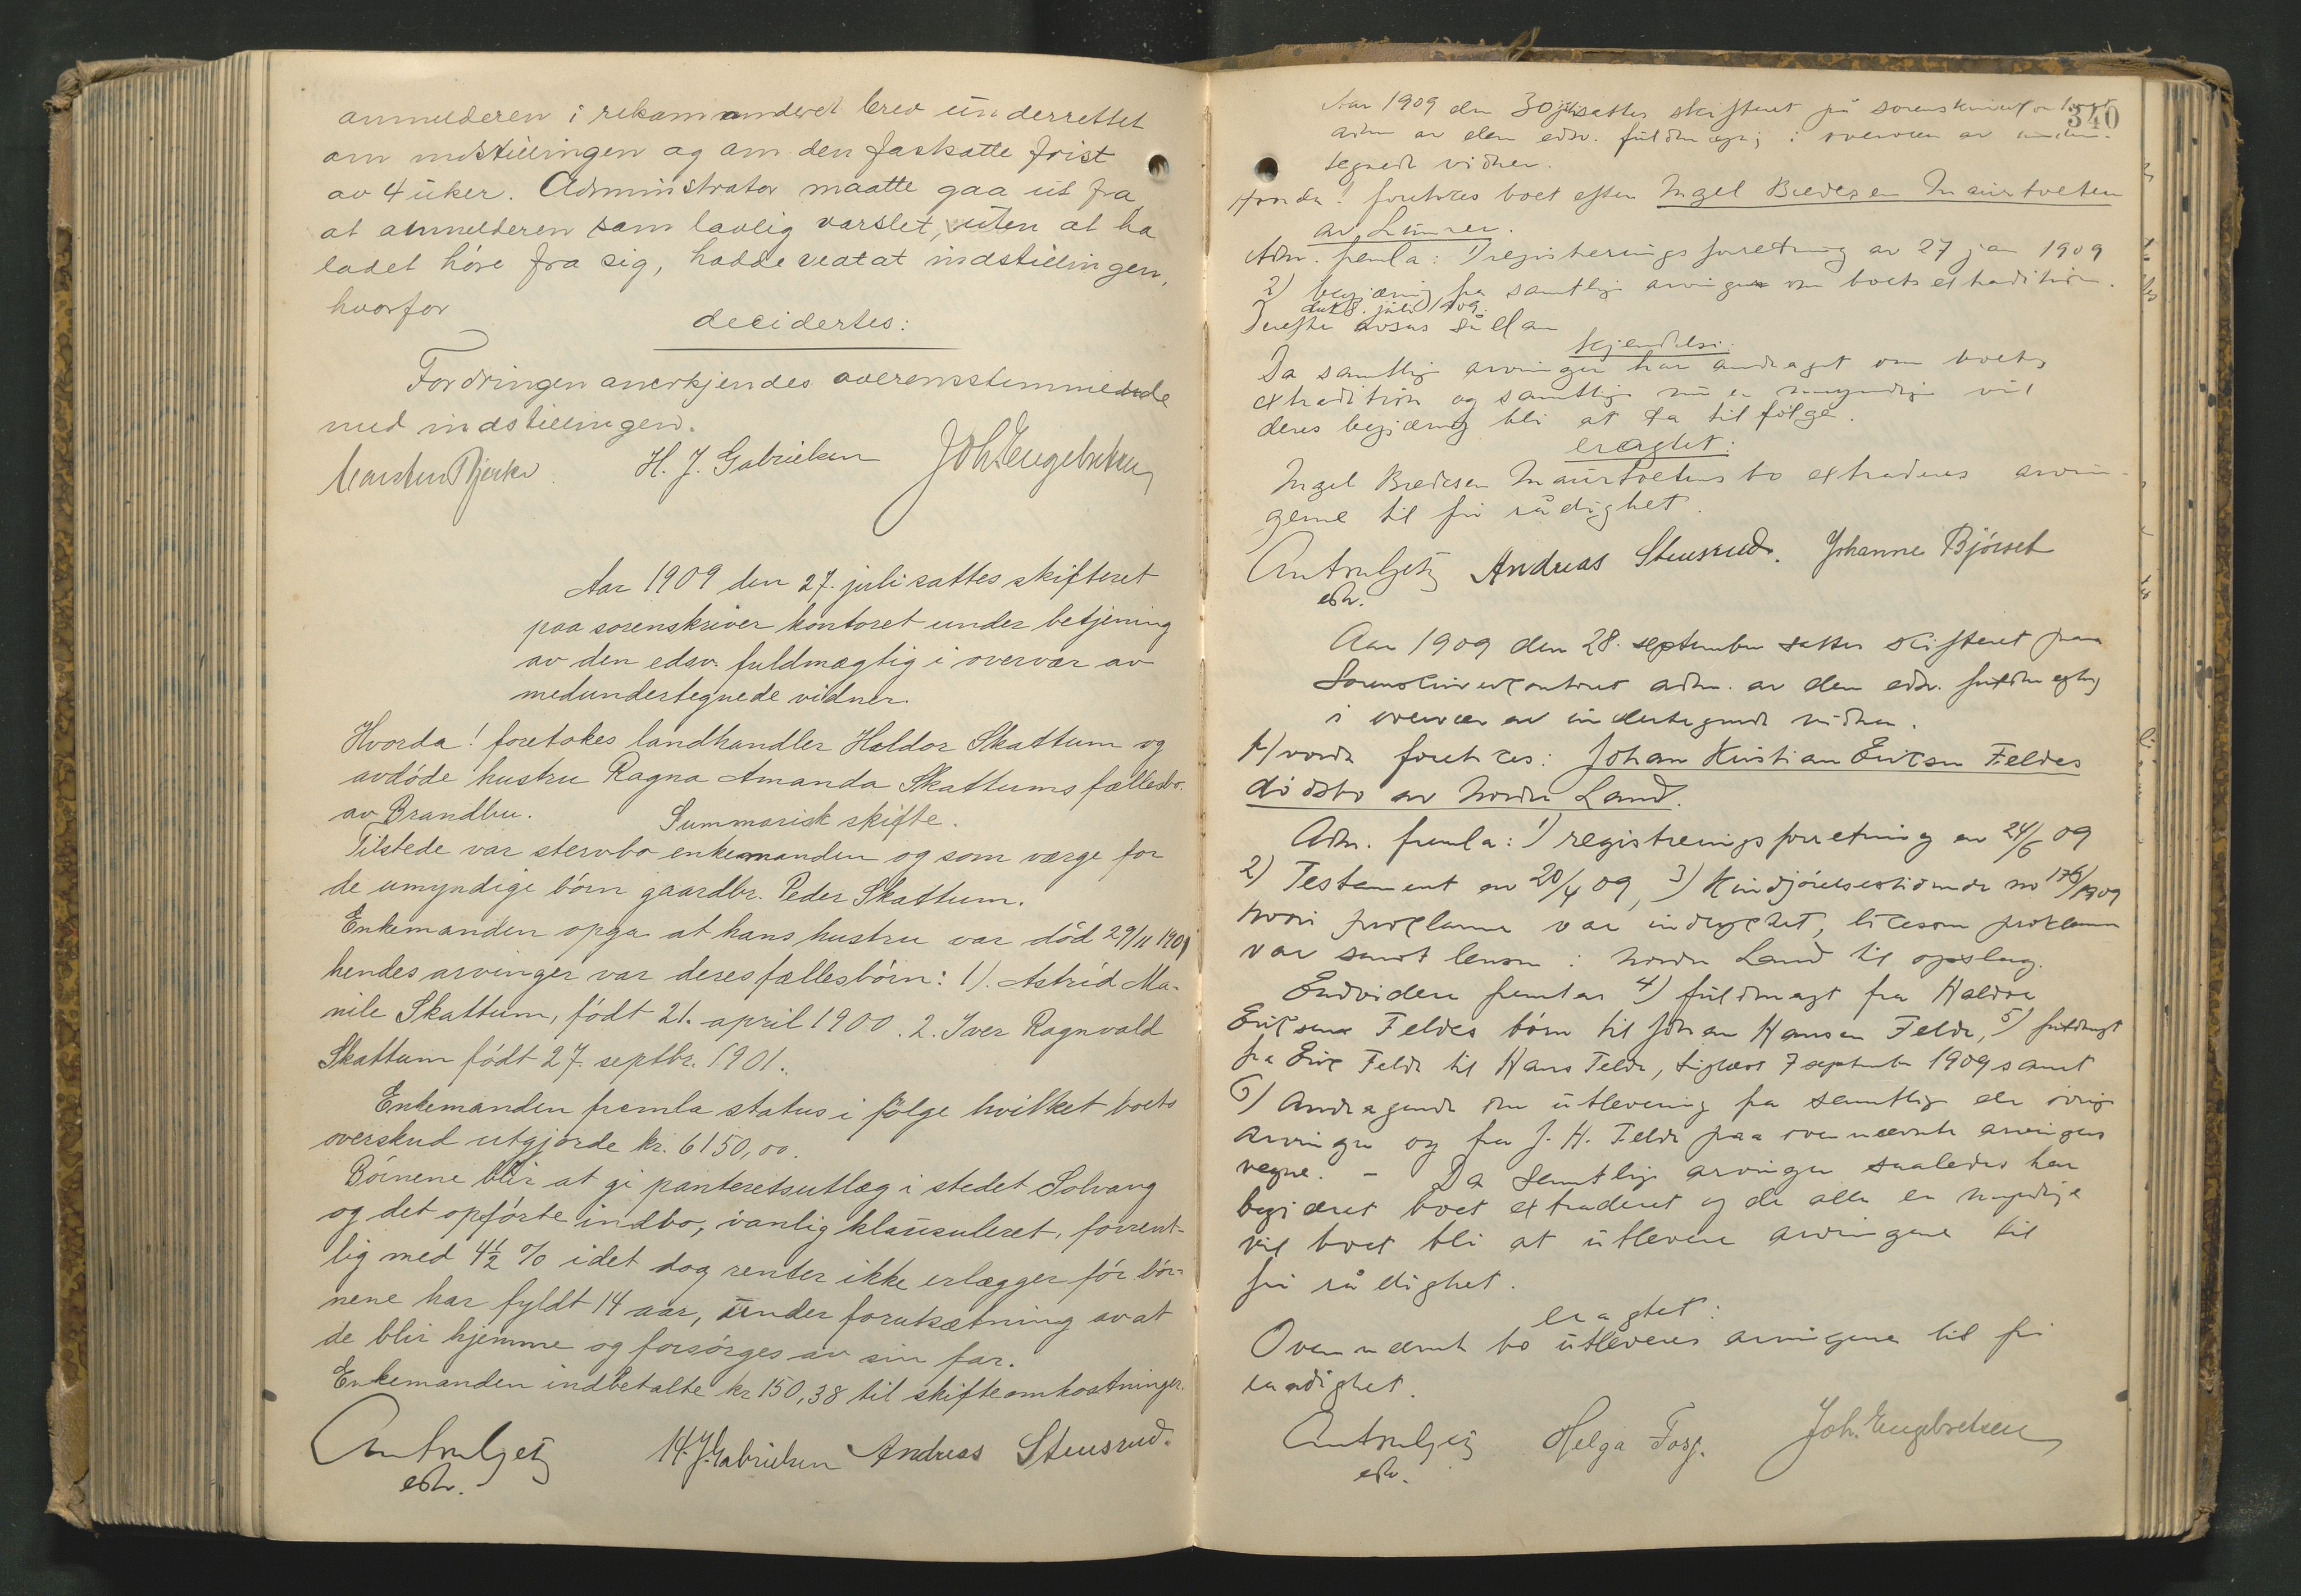 anmelderen i rekommanderet brev underrettet
om indstillingen og om den foskatte frist
av 4 uker. Administrator maatte gaa ut fra
at anmelderen som lovlig varslet, uten at ha
ladet høre fra sig, hadde vedtat indstillingen,
hvorfor
decidertes:
Fordringen anerkjendes overensstemmende
med indstillingen.
Carsten Bjerke H. J. Gabrielsen Joh Engebretsen
Aar 1909 den 27. juli sattes skifteret
paa sorenskriver kontoret under betjening
av den edsv. fuldmægtig i overvær av
medundertegnede vidner.
Hvorda! foretokes landhandler Haldor Skattum og
avdøde hustru Ragna Amanda Skattums fællesbo.
av Brandbu. Summarisk skifte.
Tilstede var stervbo enkemanden og som værge for
de umyndige børn gaardbr. Peder Skattum.
Enkemanden opga at hans hustru var død 29/11 1901
hendes arvinger var deres fællesbørn: 1). Astrid Ma-
nile Skattum, født 21. april 1900. 2. Iver Ragnvald
Skattum født 27. septbr. 1901.
Enkemanden fremla status i følge hvilket boets
overskud utgjorde kr. 6150,00.
Børnene blir at gi panteretsutlæg i stedet Solvang
og det opførte indbo, vanlig klausuleret, forrent-
lig med 4½ % idet dog renter ikke erlægger før bør-
nene har fyldt 14 aar, under forutsætning av at
de blir hjemme og forsørges av sin far.
Enkemanden indbetalte kr 150,38 til skifteomkostninger.
H. J. Gabrielsen Andreas Stensrud.
edsv.
340
Aar 1909 den 30 juli sattes skifteret på sorenskriverkontoret
adm av den edsv. fuldmægtig i overvær av under-
tegnede vidner.
Hvorda! foretokes boet efter Ingel Bredesen Maurtveten
av Lunner.
Adm. fremla: 1) registreringsforretning av 27 jan 1909
2) begjæring fra samtlige arvinger om boets extradition.
dat 8. juli 1909.
Derefter avsas sådan
kjendelse:
Da samtlige arvinger har andraget om boets
extradition og samtlige nu er myndige vil
deres begjæring bli at ta til følge.
eragtet:
Ingel Bredesen Maurtvetens bo extraderes arvin-
gerne til fri rådighet.
Andreas Stensrud. Johanne Bjørset
edsv.
Aar 1909 den 28. september sattes skifteret paa
Sorenskriverkontoret adm. av den edsv. fuldmægtig
i overvær av undertegnede vidner.
Hvorda foretokes: Johan Kristian Eriksen Feldes
dødsbo av Nordre Land.
Adm. fremla: 1) registreringsforretning av 24/6 09
2) Testament av 20/4 09, 3) Kundgjørelsestidende no 176/1909
hvori proclama var indrykket, likesom proklama
var sendt lensm i Nordre Land til opslag.
Endvidere fremlas 4) fuldmagt fra Haldor
Eriksens Feldes børn til Johan Hansen Felde, 5) fuldmagt
fra Erik Felde til Hans Felde, tinglæst 7 september 1909 samt
6) Andragende om utlevering fra samtlige de øvrige
arvinger og fra J. H. Felde paa ovennævnte arvingers
vegne. - Da samtlige arvinger saaledes har
begjæret boet extraderet og de alle er myndige
vil boet bli at utlevere arvingene til
fri rådighet.
eragtet:
Ovennævnte bo utleveres arvingene til fri
raadighet.
Helga Fosf. Joh. Engebretsen
edsv.